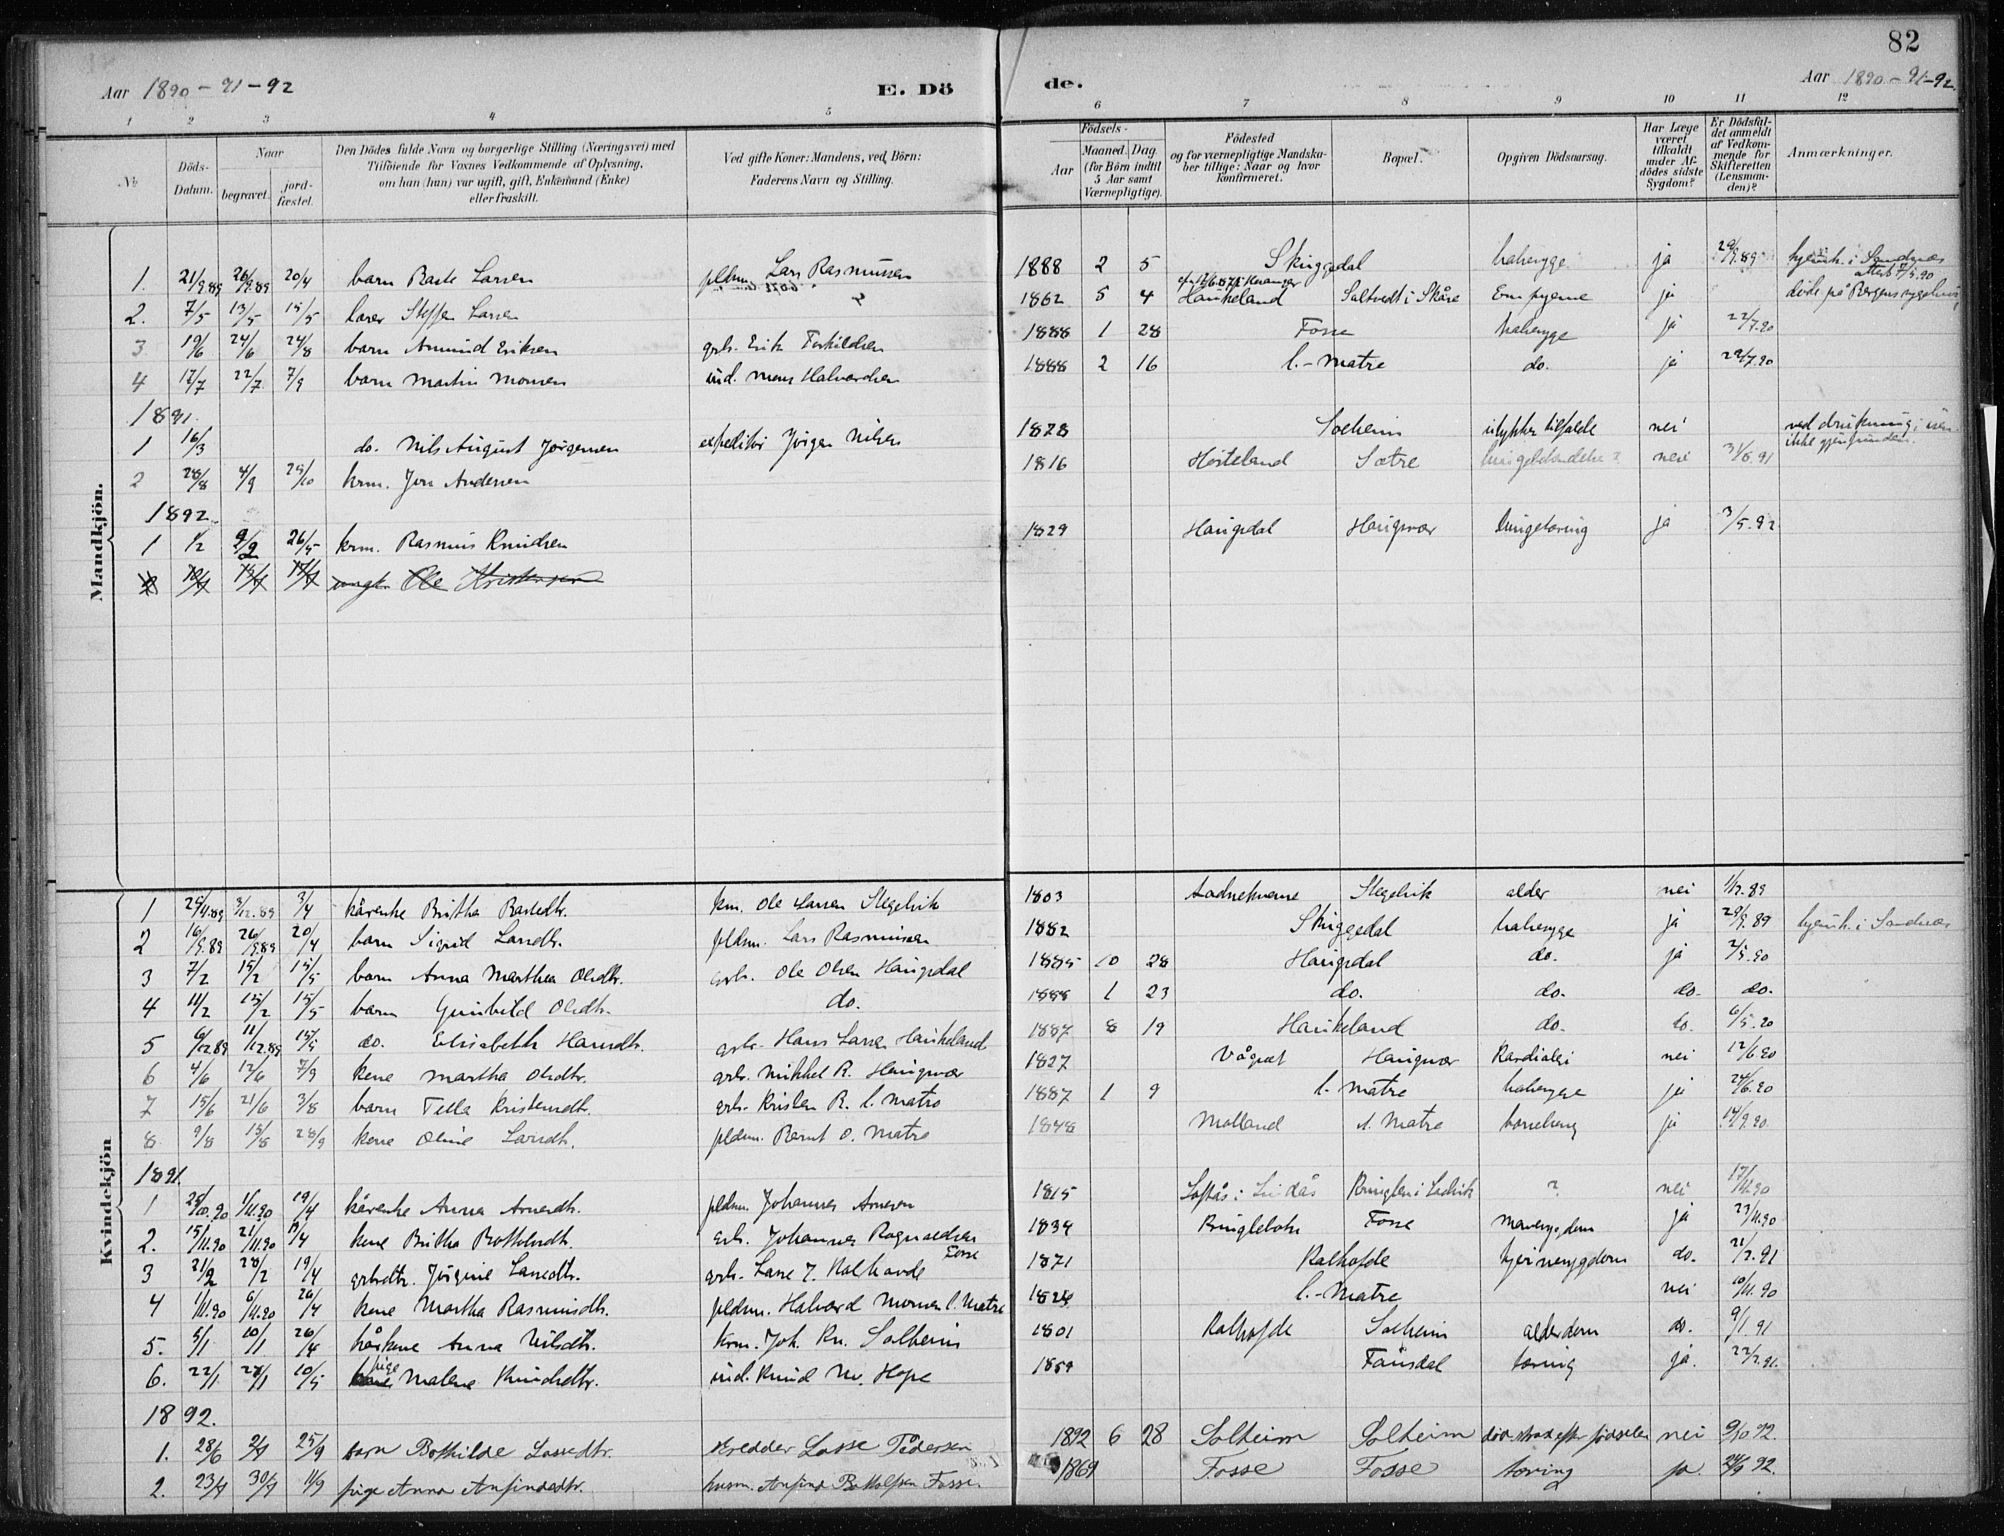 82
Aar 1890-91-92
E. Dö
de.
Aar 1890-91-92
1 2 3 4 5 6 7 8 9 10 11 12
No
Döds-Datum.
Naar
begravet.
jord-fæstet.
Den Dödes fulde Navn og borgerlige Stilling (Næringsvei) med
Tilföiende for Voxnes Vedkommende af Oplysning,
om han (hun) var ugift, gift, Enkemand (Enke)
eller fraskilt.
Ved gifte Koner: Mandens, ved Börn:
Faderens Navn og Stilling.
Födsels-
Aar
Maaned. Dag.
(for Börn indtil
5 Aar samt
Værnepligtige).
Födested
og for værnepligtige Mandska-
ber tillige: Naar og hvor
konfirmeret.
Bopæl.
Opgiven Dödsaarsag.
Har Læge
været
tilkaldt
under Af-
dödes sidste
Sygdom?
Er Dödsfal-
det anmeldt
af Vedkom-
mende for
Skifteretten
(Lensman-
den)?
Anmærkninger.
Mandkjön.
1. 21/9.89 26/9.89 20/4 barn Baste Larsen pldm. Lars Rasmussen 1888 2 5 Skuggedal halssyge ja 29/9.89 hjemh. i Sandnæs attest 7/5.90
2. 7/5 13/5 15/5 lærer Steffen Larsen 1862 5 4 Haukeland Saltvedt i Skåre Empyeme ja døde på Bergens sygehus
3 19/6 24/6 24/8 barn Amund Eriksen grbr. Erik Torkildsen 1888 1 28 Fosse halssyge ja 22/7.90
4 17/7 22/7 7/9 barn Martin Monsen ind. Mons Halvardsen 1888 2 16 l.-Matre do. ja 29/7.90
1891.
1 16/3 do. Nils August Jørgensen expeditør Jørgen Nilsen 1878 Solheim ulykkestilfælde nei ved drukning i
ikke gjenfunden.
2 28/8 4/9 29/10 krm. Jon Andersen 1816 Høiteland Sætre lungebetændelse? nei 31/8.91
1892.
1 1/2 9/2 26/5 krm. Rasmus Knudsen 1829 Haugsdal Haugsvær lungetæring ja 3/5.92
Ole Kristensen
Kvindekjön
1 25/11.89 3/12.89 3/4 kårenke Britha Bastedtr. km. Ole Larsen Stegelvik 1803 Stegelvik alder nei 1/12.89
2 16/9.89 26/9.89 20/4 barn Sigrid Larsdtr. pldm. Lars Rasmussen 1882 Skuggedal halssyge ja 29/9.89 hjemh. i Sandnæs
3 7/2 15/2 15/5 barn Anna Marthea Olsdtr. grbr. Ole Olsen Haugsdal 1885 10 28 Haugsdal do. ja 2/5.90
4 11/2 15/2 15/5 barn Gunhild Olsdtr. do. 1888 1 23 do. do. do. do.
5 6/12.89 11/12.89 15/5 do. Elisabeth Hansdtr. grbr. Hans Larsen Haukeland 1887 8 19 Haukeland do. do. 6/5.90
6 4/6 12/6 7/9 kone Martha Olsdtr. grbr. Mikkel R. Haugsvær 1827 Vågset Haugsvær Kardialgi nei 12/6.90
7 15/6 21/6 3/8 barn Tella Kristensdtr. grbr. Kristen R. l. Matre 1887 1 9 l. Matre halssyge ja 24/6.90
8. 9/8 18/8 28/9 kone Oline Larsdtr. pldm. Bernt O. Matre 1848 Molland l. Matre barselseng ja 14/9.90
1891.
1 25/10.90 1/11.90 19/4 kårenke Anna Arnesdtr. pldm. Johannes Arnesen 1815 Loftås i Lindås ? nei 17/11.90
2. 15/11.90 21/11.90 19/4 kone Britha Bottolvsdtr. grb. Johannes Ragnvaldsen Fosse 1834 Kringlebotn Fosse mavesygdom ja 23/11.90
3 21/2 28/2 19/4 grbrdtr. Jørgine Larsdtr. grb. Lasse J. Kalhovde 1871 Kalhovde hjernesygdom do. 21/2.91
4 1/11.90 6/11.90 26/4 kone Martha Rasmusdtr. pldm. Halvard Monsen l. Matre 1828 l.-Matre nei 10/11.90
5. 5/1 10/1 26/4 kårkone Anna Nilsdtr. krm. Joh. Kn. Solheim 1801 Kalhovde Solheim alderdom do. 9/1.91
6. 22/1 28/1 10/5 pige Malene Knudsdtr. ind. Knud Hope 1859 Fausdal tæring ja. 22/2.91.
1892.
1. 28/6 2/7 25/9 barn Bothilde Lassedtr. skredder Lasse Pedersen 1892 6 28 Solheim Solheim død strax efter fødselen nei 9/10 92.
2. 23/7 30/7 11/9 pige Anna Anfindsdtr. husm. Anfind Bottolfsen Fosse. 1869 Fosse Fosse tæring ja 24/9 92.